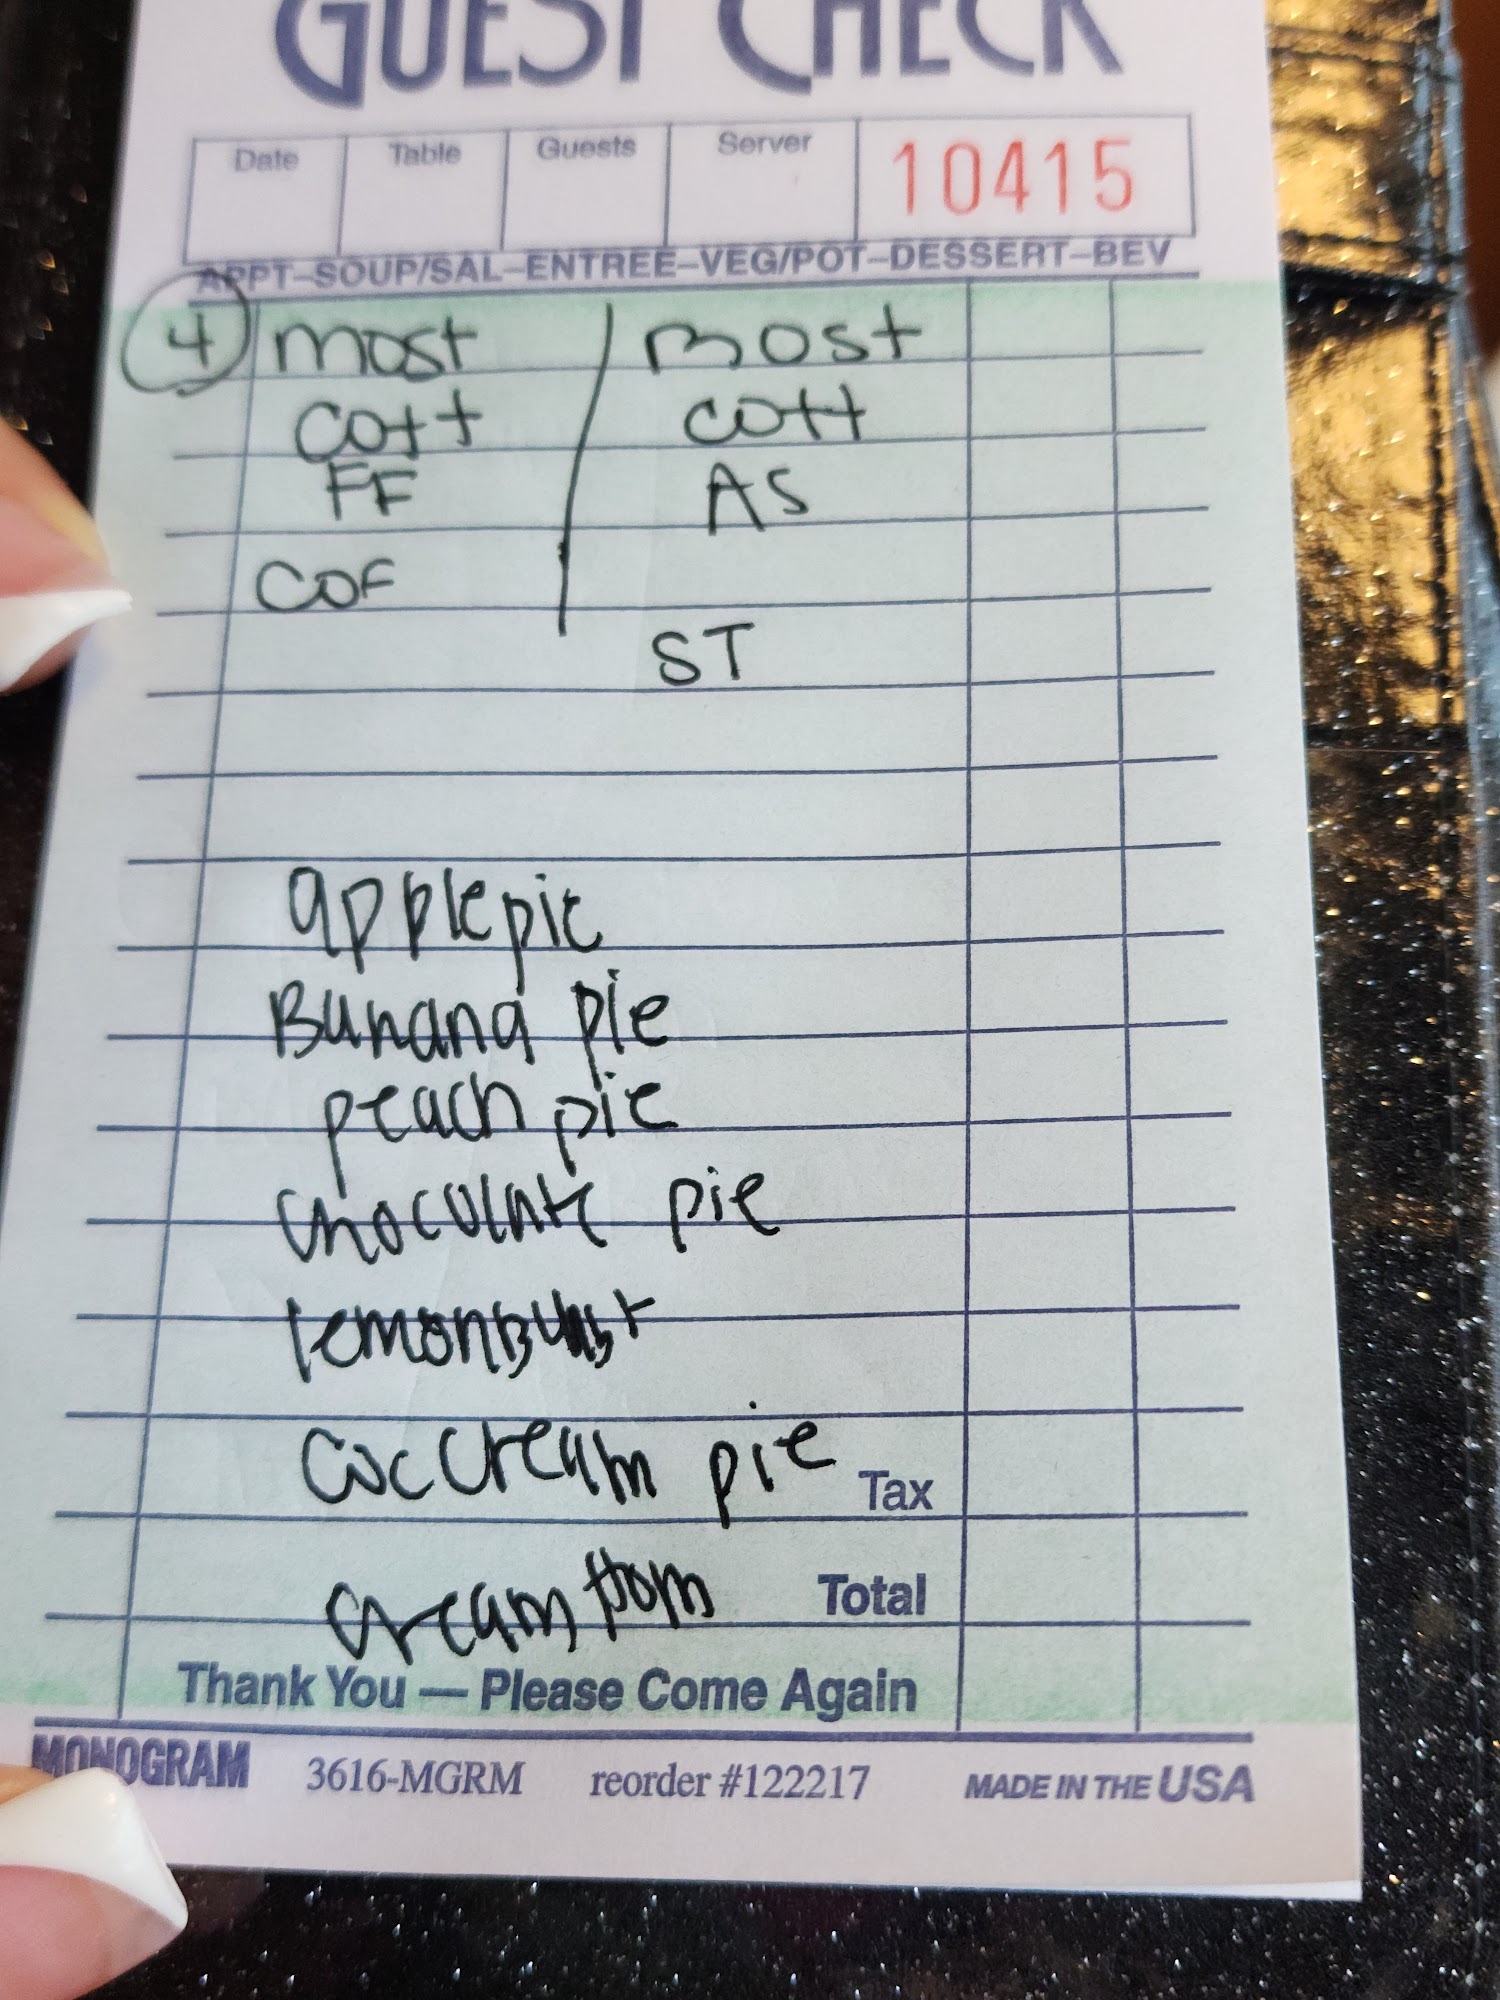 GUEST CHECK
Date Table Guests Server 10415
APPT–SOUP/SAL–ENTREE–VEG/POT–DESSERT–BEV
4 most / most
cott cott
FF AS
COF
ST
apple pie
Banana pie
peach pie
chocolate pie
lemon
coccream pie Tax
cream Horn Total
Thank You — Please Come Again
MONOGRAM 3616-MGRM reorder #122217 MADE IN THE USA